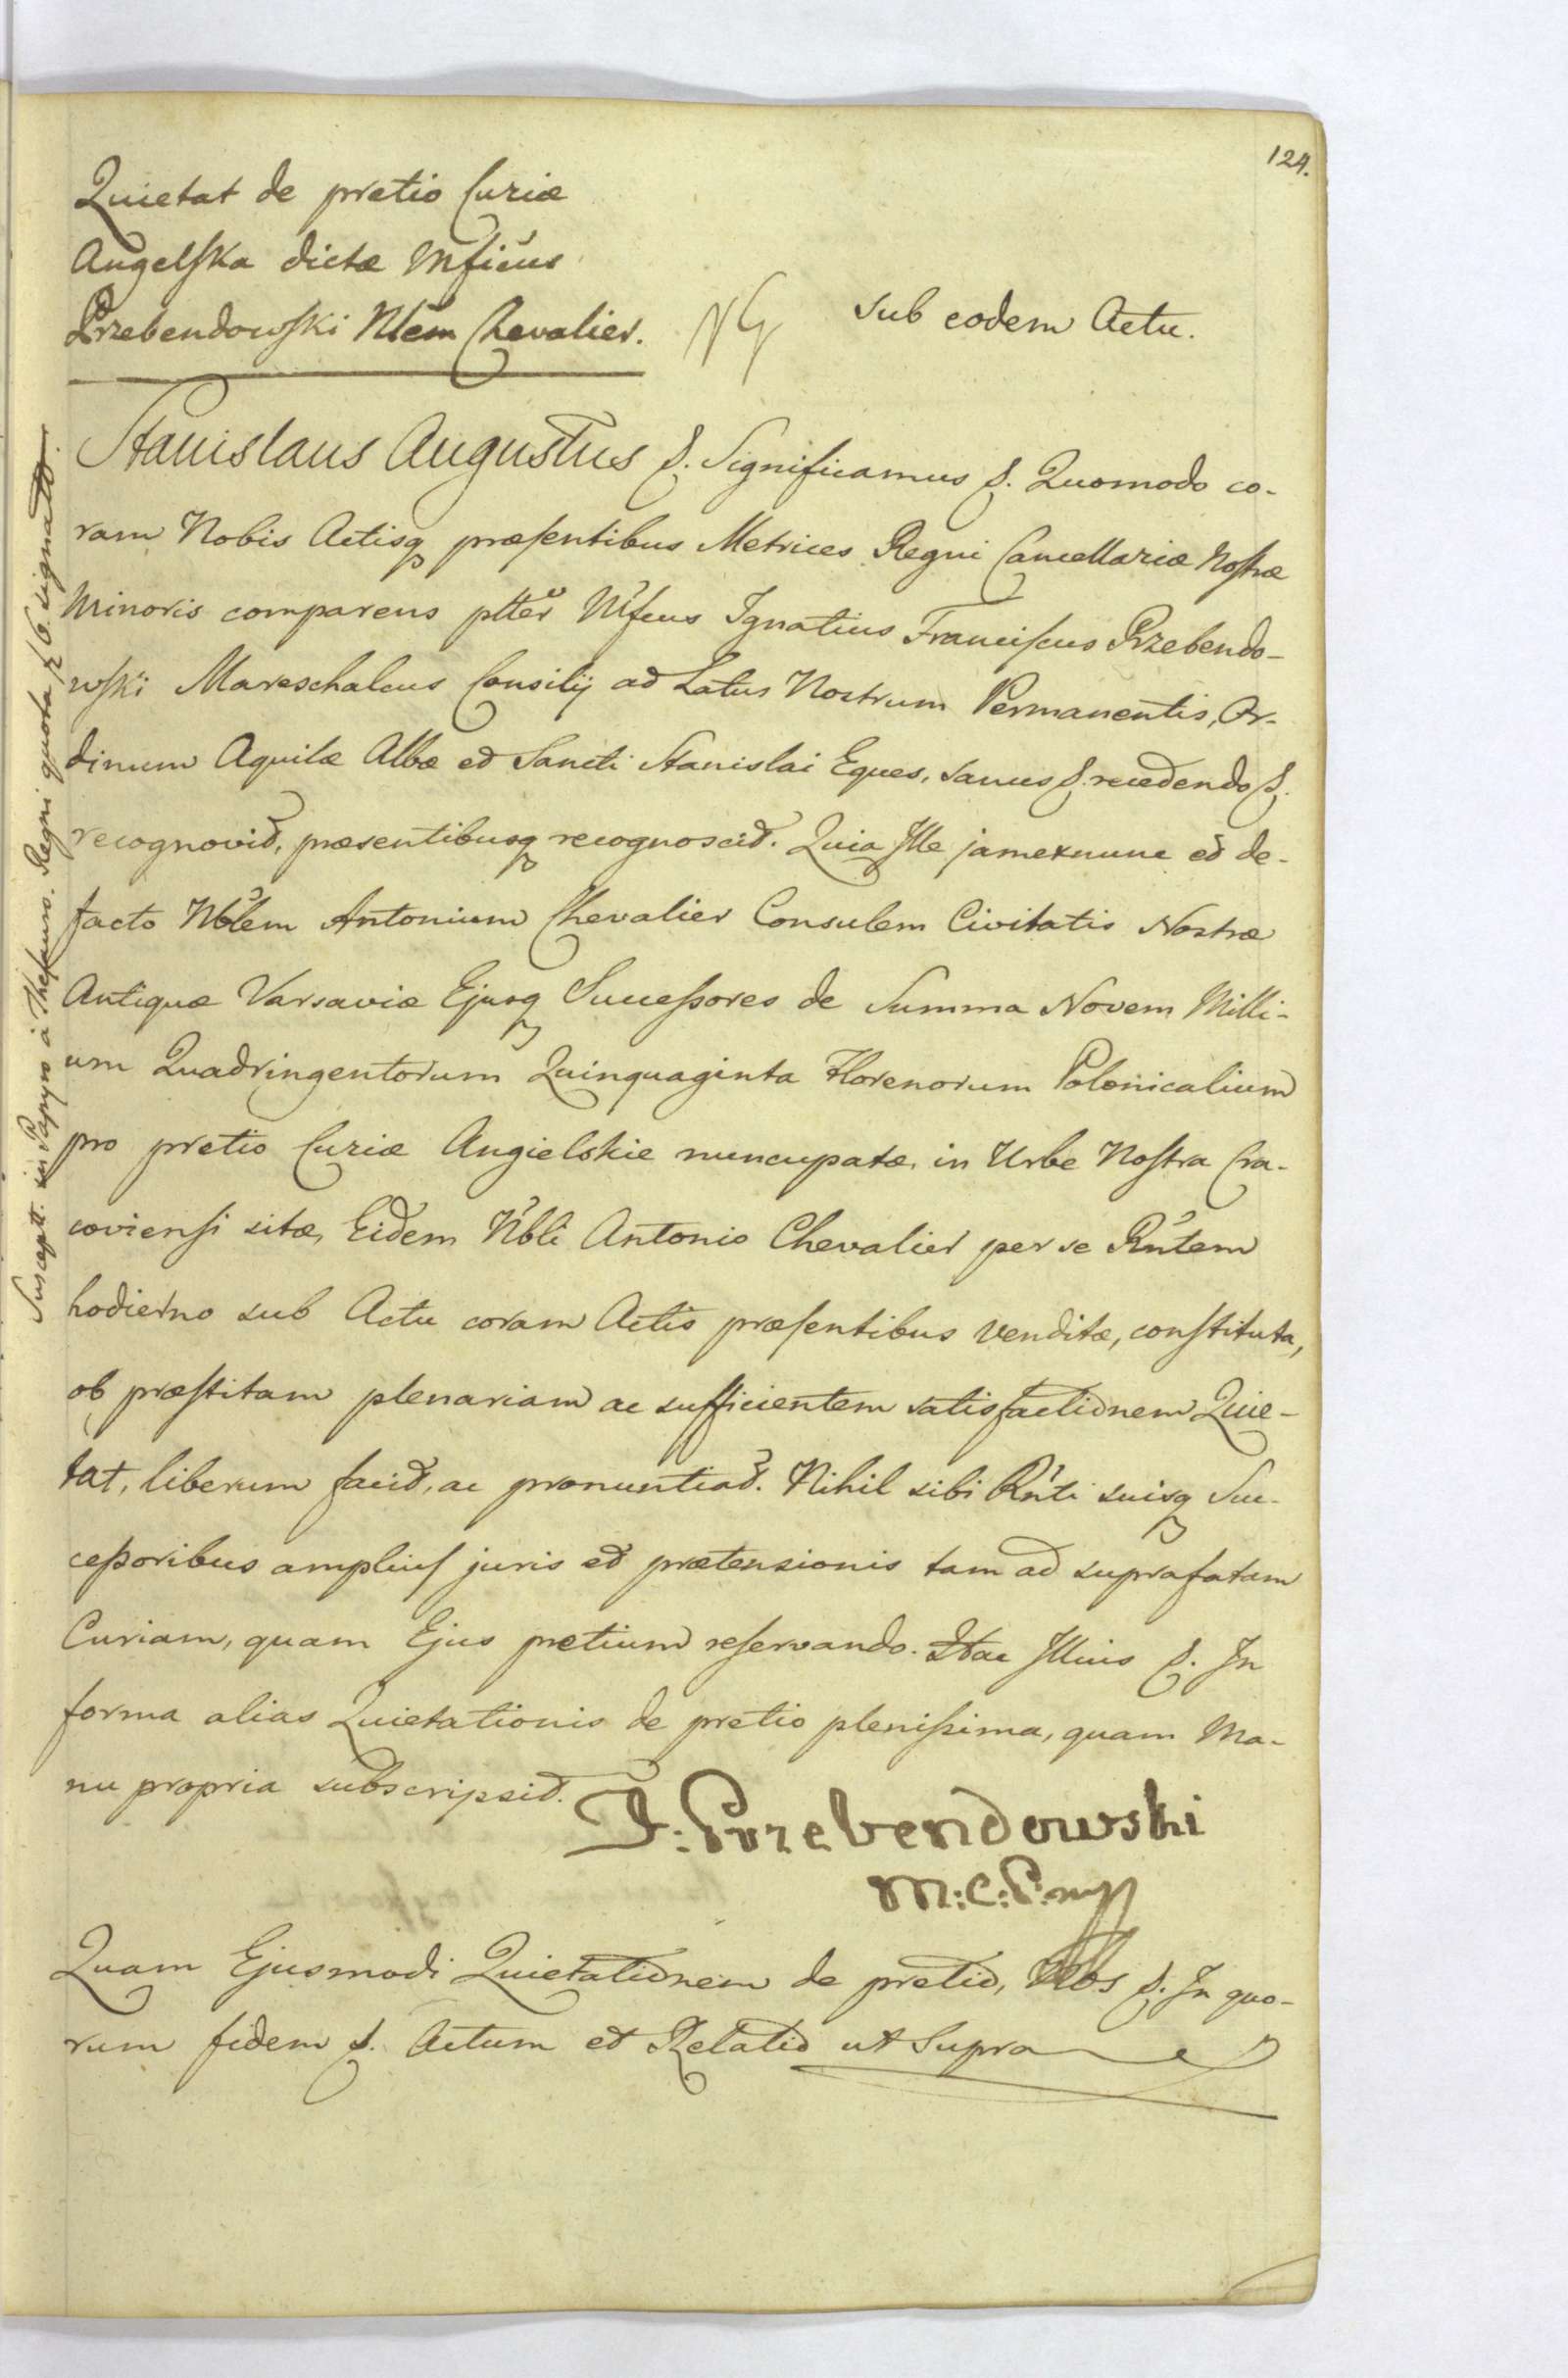 124.
Quietat de pretio Curiæ
Angelſka dictæ Mficus
Przebendowſki Nlem Chevalier.
NG
sub eodem Actu.
Stanislaus Augustus &. Significamus &. Quomodo co-
ram Nobis Actisq præſentibus Metrices Regni Cancellariæ Noſtræ
Minoris comparens pltter Mfcus Ignatius Franciſcus Przebendo-
wſki Mareschalcus Consilij ad Latus Nostrum Permanentis, Or-
dinum Aquilæ Albæ et Sancti Stanislai Eques, sanus &. recedendo &.
recognovit, præsentibusq recognoscit. Quia Ille jamexnunc et de-
facto Nblem Antonium Chevalier Consulem Civitatis Nostræ
Antiquæ Varsaviæ Ejusq Succeſsores de Summa Novem Milli-
um Quadringentorum Quinquaginta Florenorum Polonicalium
pro pretio Curiæ Angielskie nuncupatæ, in Urbe Noſtra Cra-
covienſi sitæ, Eidem Nbli Antonio Chevalier per se Rntem
hodierno sub Actu coram Actis præſentibus venditæ, conſtituta,
ob præſtitam plenariam ac sufficientem satisfactionem Quie-
tat, liberum facit, ac pronuntiat. Nihil sibi Rnti suisq Suc-
ceſsoribus ampliuſ juris et prætensionis tam ad suprafatam
Curiam, quam Ejus pretium reſervando. Hac Illius &. In
forma alias Quietationis de pretio pleniſsima, quam Ma-
nu propria subscripsit.
I: Przebendowski
M:C:P:mp
Quam Ejusmodi Quietationem de pretio, Nos &. In quo-
rum fidem &. Actum et Relatio ut Supra
Suscept. in Papyro à Theſauro Regni quota 6. signat.